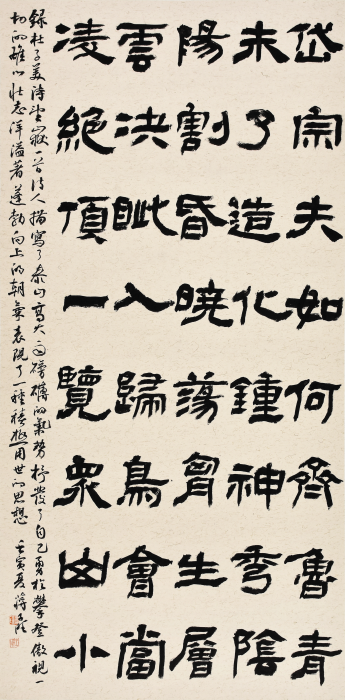 岱宗夫如何齊魯青
未了造化鍾神秀陰
陽割昏曉蕩胷生層
雲決眦入歸鳥會當
凌絕頂一覽衆山小
錄杜子美詩望嶽一首詩人描寫了泰山高大而磅礴的氣勢抒發了自己勇於攀登傲視一
切的雄心壯志洋溢著蓬勃向上的朝氣表現了一種積極用世的思想 壬寅夏蔣